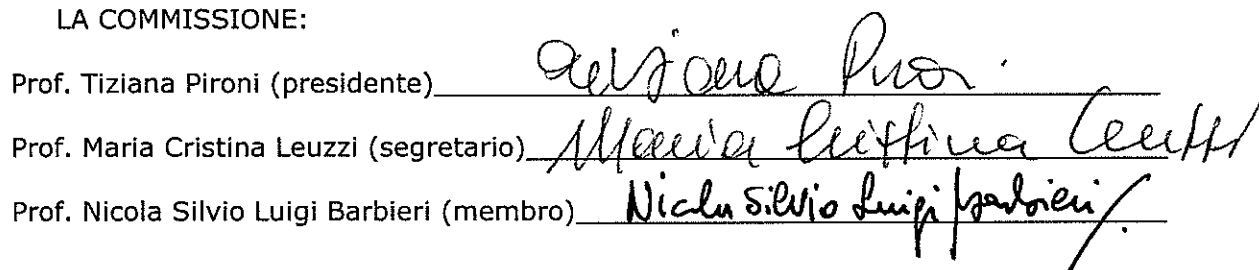 LA COMMISSIONE:
Prof. Tiziana Pironi (presidente) Tiziana Pironi
Prof. Maria Cristina Leuzzi (segretario) Maria Cristina Leuzzi
Prof. Nicola Silvio Luigi Barbieri (membro) Nicola Silvio Luigi Barbieri